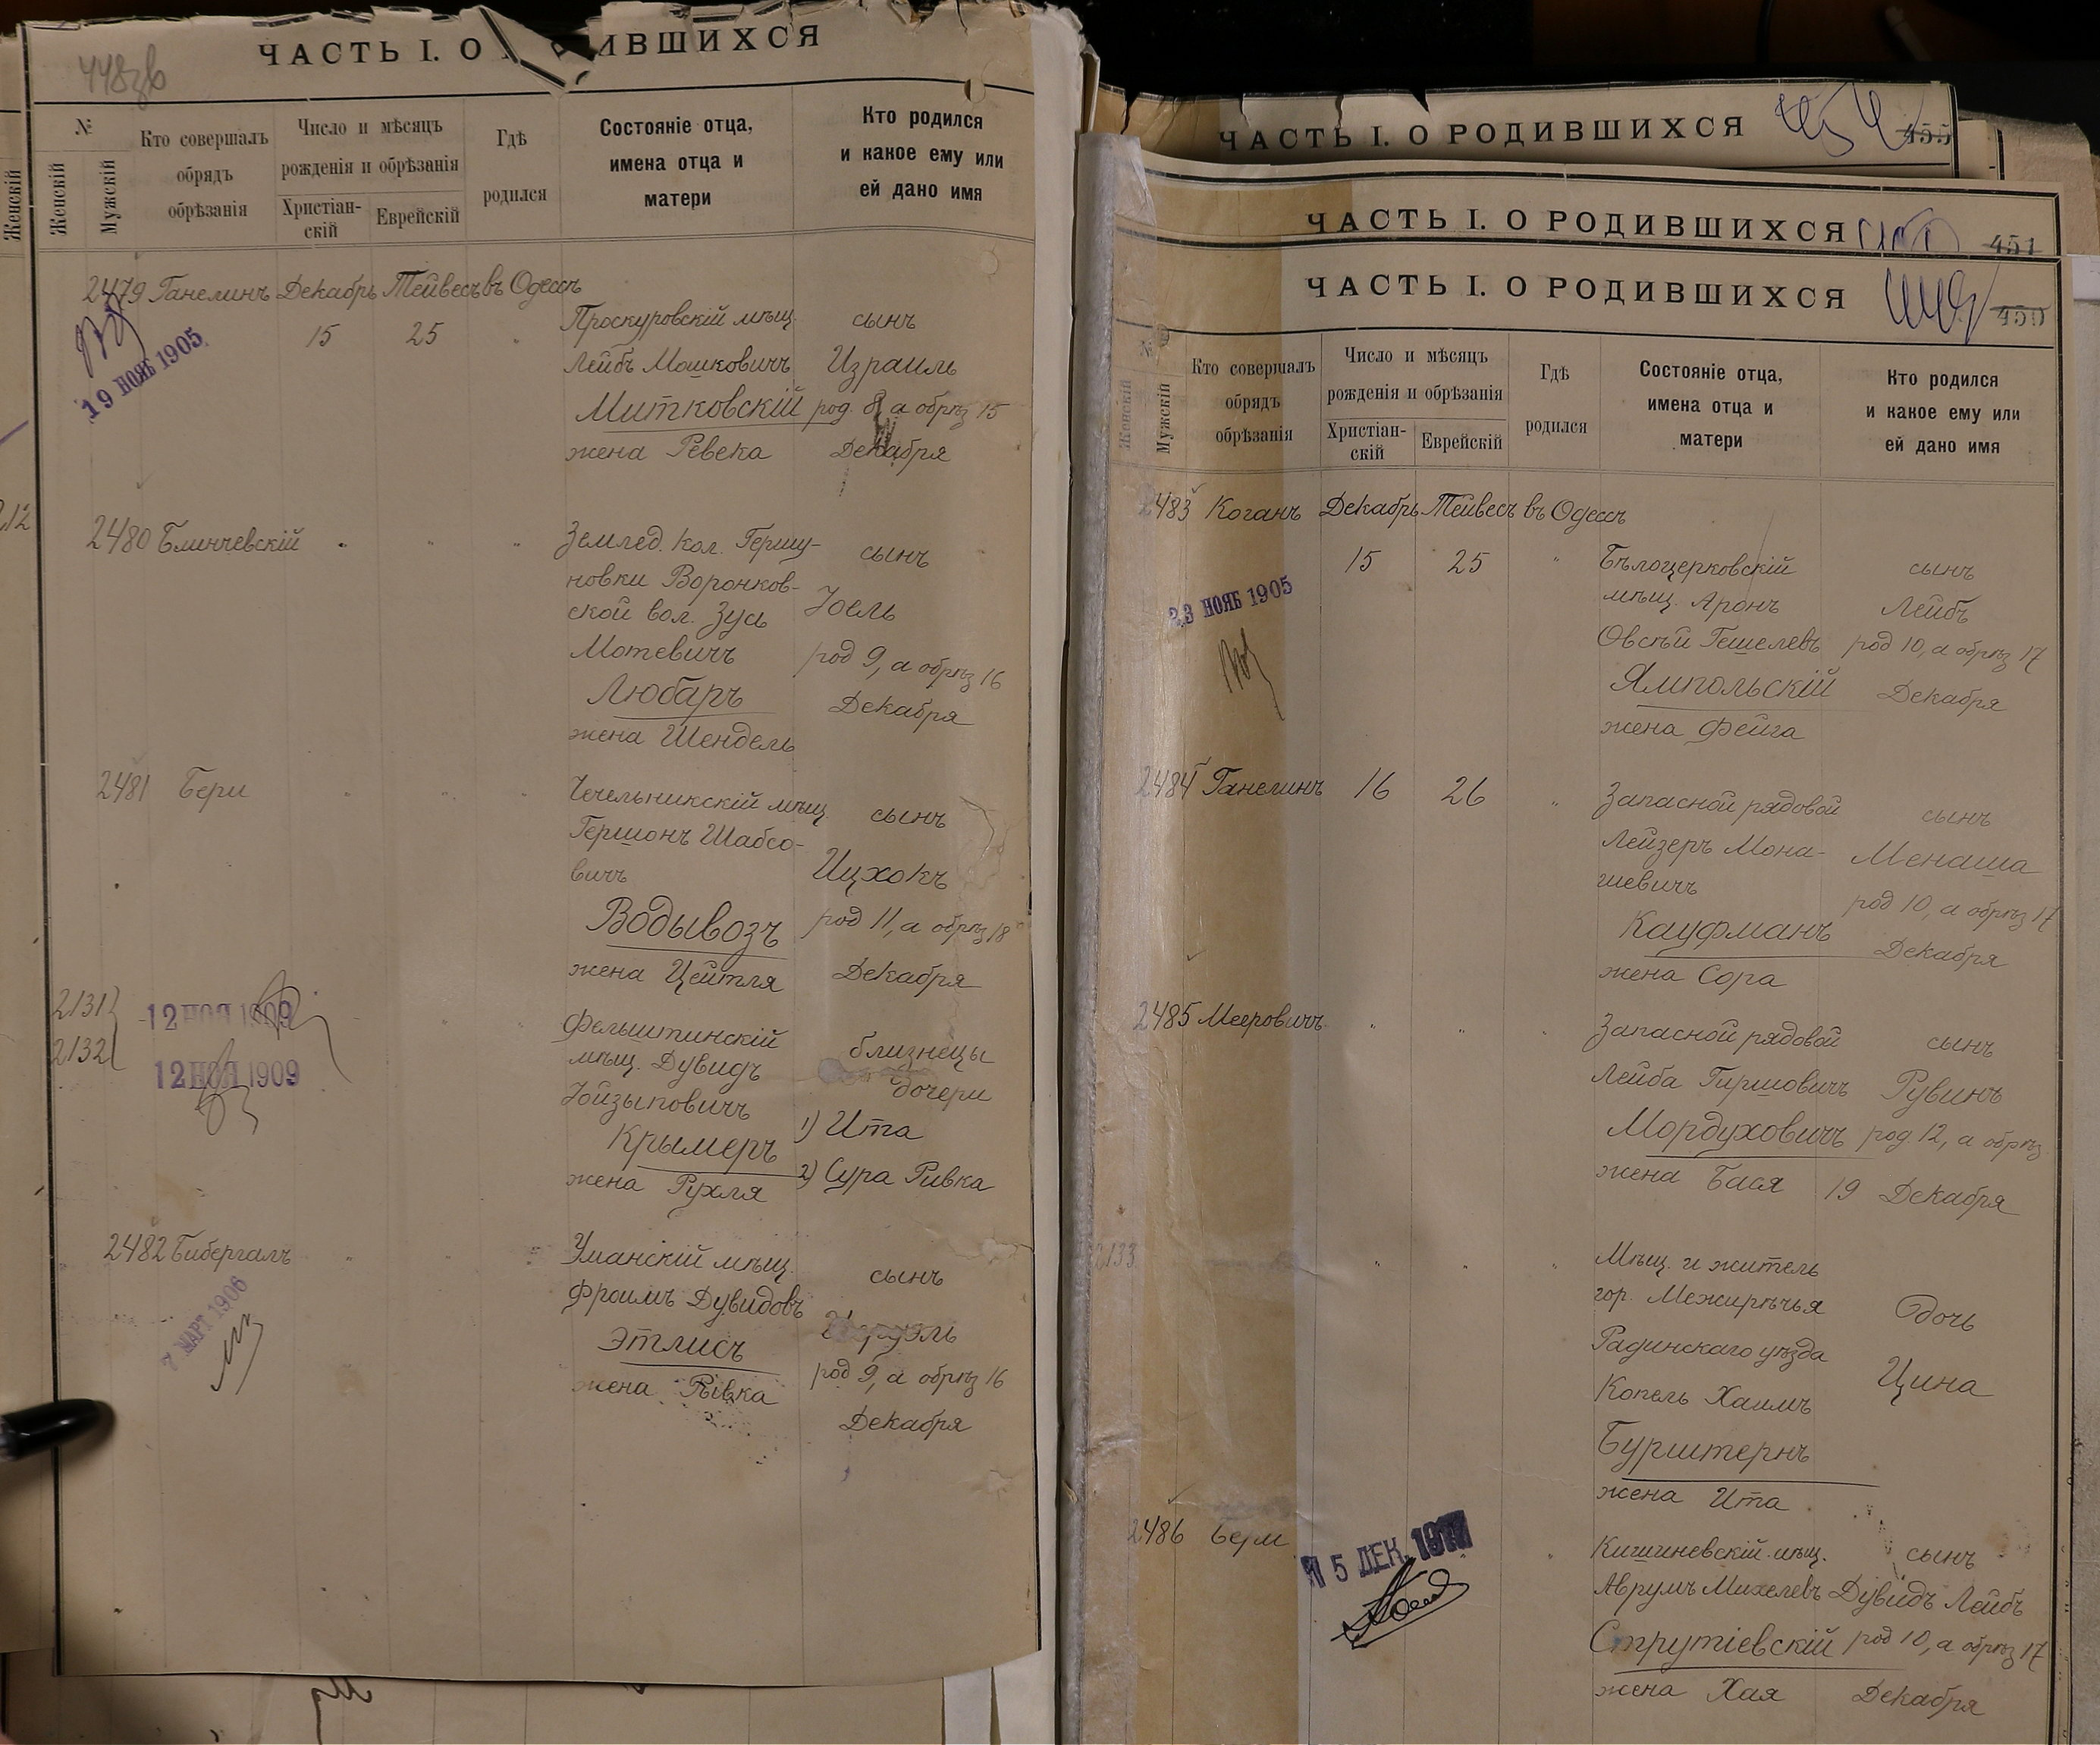 448об
ЧАСТЬ I. О ИВШИХСЯ
№
Женскій
Мужскій
Кто совершалъ
обрядъ
обрѣзанія
Число и мѣсяцъ
рожденія и обрѣзанія
Христіан-
скій
Еврейскій
Гдѣ
родился
Состояніе отца,
имена отца и
матери
Кто родился
и какое ему или
ей дано имя
Женскій
2479 Ганелинъ Декабрь Тейвесъ въ Одессѣ
15 25 "
Проскуровскій мѣщ. сынъ
Лейбъ Мошковичъ Израиль
Митковскій род. 8, а обрѣз 15
жена Ревека Декабря
19 НОЯБ 1905
2480 Блинчевскій " " "
Землед. кол. Гершу- сынъ
новки Воронков-
ской вол. Зусь Іоель
Мотевичъ род 9, а обрѣз 16
Любаръ Декабря
жена Шендель
2481 Бери " " "
Чечельникскій мѣщ. сынъ
Гершонъ Шабсо-
вичъ Ицхокъ
Водывозъ род 11, а обрѣз 18
жена Цейтля Декабря
2131
2132
12 НОЯ 1909
12 НОЯ 1909
Фельштинскій близнецы
мѣщ. Дувидъ дочери
Іойзыповичъ 1) Ита
Крымеръ 2) Сура Ривка
жена Рухля
2482 Бибергалъ " " "
Уманскій мѣщ. сынъ
Фроимъ Дувидовъ
Этлисъ род 9, а обрѣз 16
жена Ривка Декабря
7 МАРТ 1906
ЧАСТЬ I. О РОДИВШИХСЯ 455
ЧАСТЬ I. О РОДИВШИХСЯ 451
ЧАСТЬ I. О РОДИВШИХСЯ 450
№
Женскій
Мужскій
Кто совершалъ
обрядъ
обрѣзанія
Число и мѣсяцъ
рожденія и обрѣзанія
Христіан-
скій
Еврейскій
Гдѣ
родился
Состояніе отца,
имена отца и
матери
Кто родился
и какое ему или
ей дано имя
2483 Коганъ Декабрь Тейвесъ въ Одессѣ
15 25 "
Бѣлоцерковскій сынъ
мѣщ. Аронъ Лейбъ
Овсѣй Гешелевъ род 10, а обрѣз 17
Ямпольскій Декабря
жена Фейга
23 НОЯБ 1905
2484 Ганелинъ 16 26 "
Запасной рядовой сынъ
Лейзеръ Мона- Менаша
шевичъ род 10, а обрѣз 17
Кауфманъ Декабря
жена Сора
2485 Мееровичъ " " "
Запасной рядовой сынъ
Лейба Гиршовичъ Рувинъ
Мордуховичъ род 12, а обрѣз
жена Бася 19 Декабря
2133 " " "
Мѣщ. и житель
гор. Межирѣчья дочь
Радинскаго уѣзда
Копель Хаимъ Цина
Бурштернъ
жена Ита
2486 Бери "
15 ДЕК. 1917
Кишиневскій мѣщ. сынъ
Аврумъ Михелевъ Дувидъ Лейбъ
Струтіевскій род 10, а обрѣз 17
жена Хая Декабря